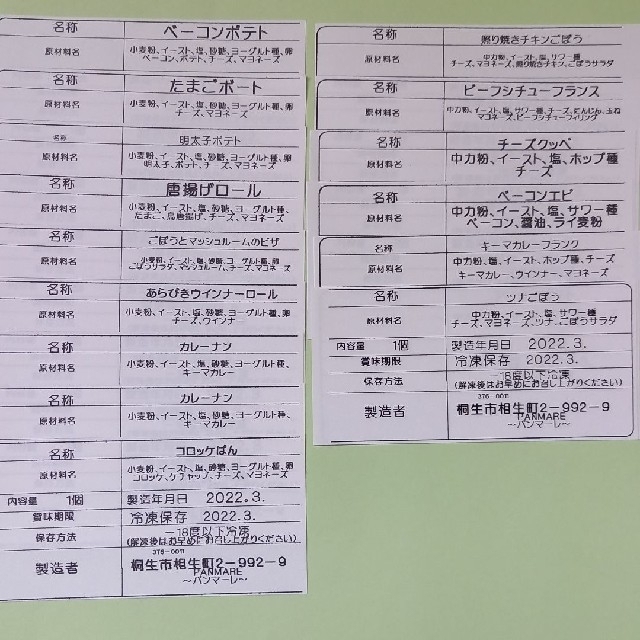 名称 ベーコンポテト
原材料名 小麦粉、イースト、塩、砂糖、ヨーグルト種、卵
ベーコン、ポテト、チーズ、マヨネーズ
名称 たまごボート
原材料名 小麦粉、イースト、塩、砂糖、ヨーグルト種、卵
チーズ、マヨネーズ
名称 明太子ポテト
原材料名 小麦粉、イースト、塩、砂糖、ヨーグルト種、卵
明太子、ポテト、チーズ、マヨネーズ
名称 唐揚げロール
原材料名 小麦粉、イースト、塩、砂糖、ヨーグルト種、
たまご、鳥唐揚げ、チーズ、マヨネーズ
名称 ごぼうとマッシュルームのピザ
原材料名 小麦粉、イースト、塩、砂糖、ヨーグルト種、卵
ごぼうサラダ、マッシュルーム、チーズ、マヨネーズ
名称 あらびきウインナーロール
原材料名 小麦粉、イースト、塩、砂糖、ヨーグルト種、卵
チーズ、ウインナ
名称 カレーナン
原材料名 小麦粉、イースト、塩、砂糖、ヨーグルト種、
キーマカレー
名称 カレーナン
原材料名 小麦粉、イースト、塩、砂糖、ヨーグルト種、
キーマカレー
名称 コロッケぱん
原材料名 小麦粉、イースト、塩、砂糖、ヨーグルト種、卵
コロッケ、ケチャップ、チーズ、マヨネーズ
内容量 1個 製造年月日 2022.3.
賞味期限 冷凍保存 2022.3.
保存方法 －18度以下冷凍
(解凍後はお早めにお召し上がりください)
製造者 376-0011
桐生市相生町2－992－9
PANMARE
～パンマーレ～
名称 照り焼きチキンごぼう
原材料名 中力粉、イースト、塩、サワー種
チーズ、マヨネーズ、照り焼きチキン、ごぼうサラダ
名称 ビーフシチューフランス
原材料名 中力粉、イースト、塩、サワー種、チーズ、にんじん、玉ね
マヨネーズ、ビーフシチューフィリング
名称 チーズクッペ
原材料名 中力粉、イースト、塩、ホップ種
チーズ
名称 ベーコンエピ
原材料名 中力粉、イースト、塩、サワー種
ベーコン、醤油、ライ麦粉
名称 キーマカレーフランク
原材料名 中力粉、塩、イースト、ホップ種、チーズ
キーマカレー、ウインナー、マヨネーズ
名称 ツナごぼう
原材料名 中力粉、イースト、塩、サワー種
チーズ、マヨネーズ、ツナ、ごぼうサラダ
内容量 1個 製造年月日 2022.3.
賞味期限 冷凍保存 2022.3.
保存方法 －18度以下冷凍
(解凍後はお早めにお召し上がりください)
製造者 376-0011
桐生市相生町2－992－9
PANMARE
～パンマーレ～